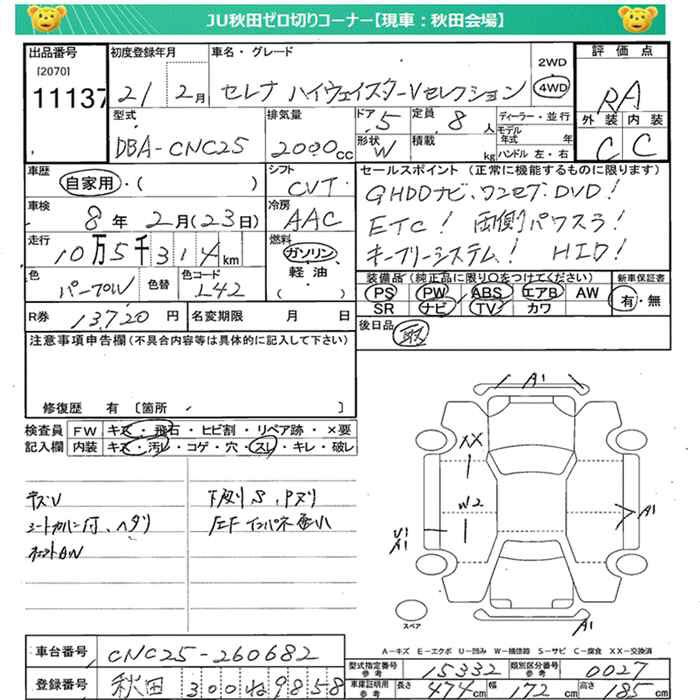 JU秋田ゼロ切りコーナー【現車：秋田会場】
出品番号
[2070]
11137
初度登録年月
21 2月
車名・グレード
セレナ ハイウェイスターVセレクション
2WD
4WD
評価点
RA
外装 内装
C C
型式
DBA-CNC25
排気量
2000cc
ドア 5
形状 W
定員 8人
積載 kg
ディーラー・並行
モデル年式 年
ハンドル 左・右
車歴
自家用・( )
シフト
CVT
セールスポイント（正常に機能するものに限ります）
GHDDナビ、ワンセグ、DVD!
ETC! 両側パワスラ!
キーフリーシステム! HID!
車検
8年2月(23日)
冷房
AAC
走行
10万5千314km
燃料
ガソリン
軽油
( )
色
パープルW
色替
色コード
L42
装備品（純正品に限り○をつけてください）
PS PW ABS エアB AW
SR ナビ TV カワ
新車保証書
有・無
R券 13,720円
名変期限 月 日
後日品
注意事項申告欄（不具合内容等は具体的に記入して下さい）
修復歴 有 〔箇所 〕
検査員記入欄
FW キズ・飛石・ヒビ割・リペア跡・×要
内装 キズ・汚レ・コゲ・穴・スレ・キレ・破レ
A1
XX
W2
A1
A1
A1
スペア
A－キズ E－エクボ U－凹み W－補修箇 S－サビ C－腐食 XX－交換済
車台番号
CNC25-260682
登録番号
秋田 300 ね 9858
型式指定番号
参考
15332
類別区分番号
参考
0027
車庫証明用
参考
長さ 474cm
幅 172cm
高さ 185cm